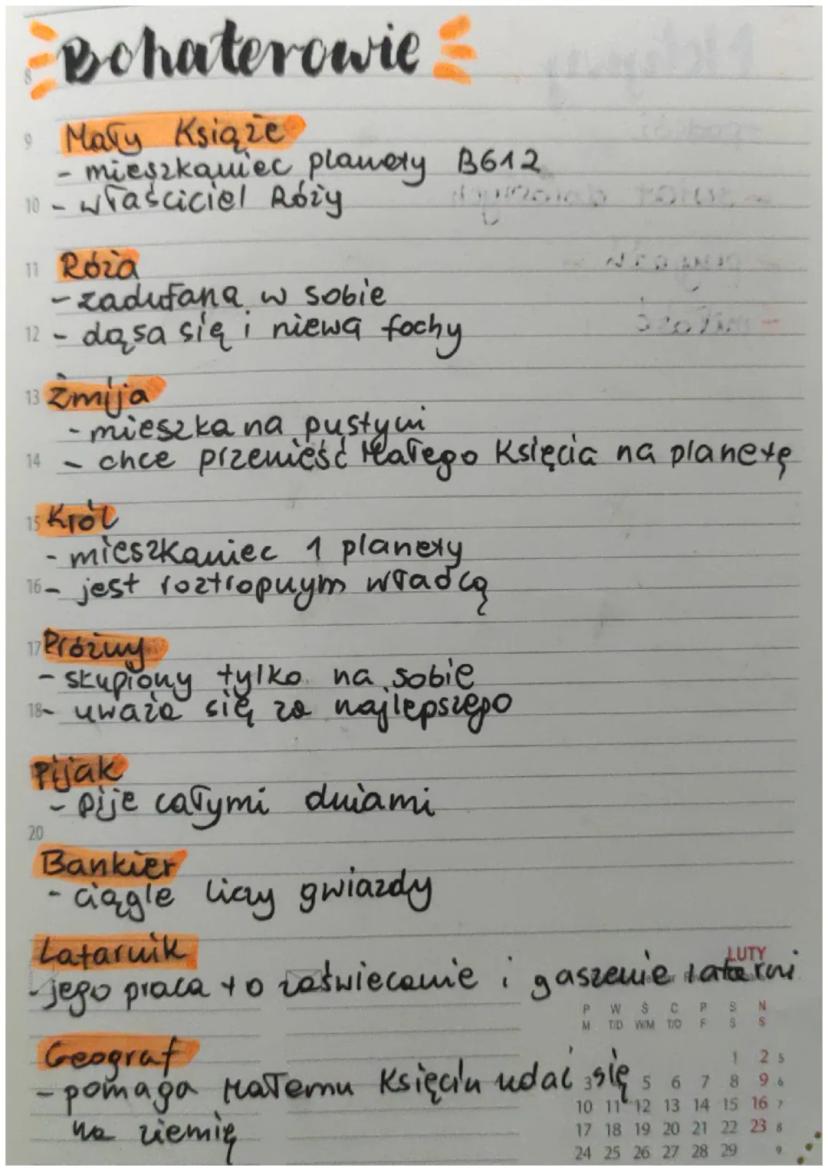 Bohaterowie
8
9 Mały Książe
- mieszkaniec planety B612
10 - właściciel Róży
11 Róża
- zadufana w sobie
12 - dąsa się i niewa fochy
13 Żmija
- mieszka na pustyni
14 - chce przenieść Małego Księcia na planetę
15 Król
- mieszkaniec 1 planety
16 - jest roztropnym władcą
17 Próżny
- skupiony tylko na sobie
18 - uważa się za najlepszego
Pijak
- pije całymi dniami
20
Bankier
- ciągle liczy gwiazdy
Latarnik
LUTY
- jego praca to zaświecanie i gaszenie latarni
P W Ś C P S N
M T/D W/M T/D F S S
Geograf
1 2 5
- pomaga Małemu Księciu udać się
3 5 6 7 8 9 6
na ziemię
10 11 12 13 14 15 16 7
17 18 19 20 21 22 23 8
24 25 26 27 28 29 9